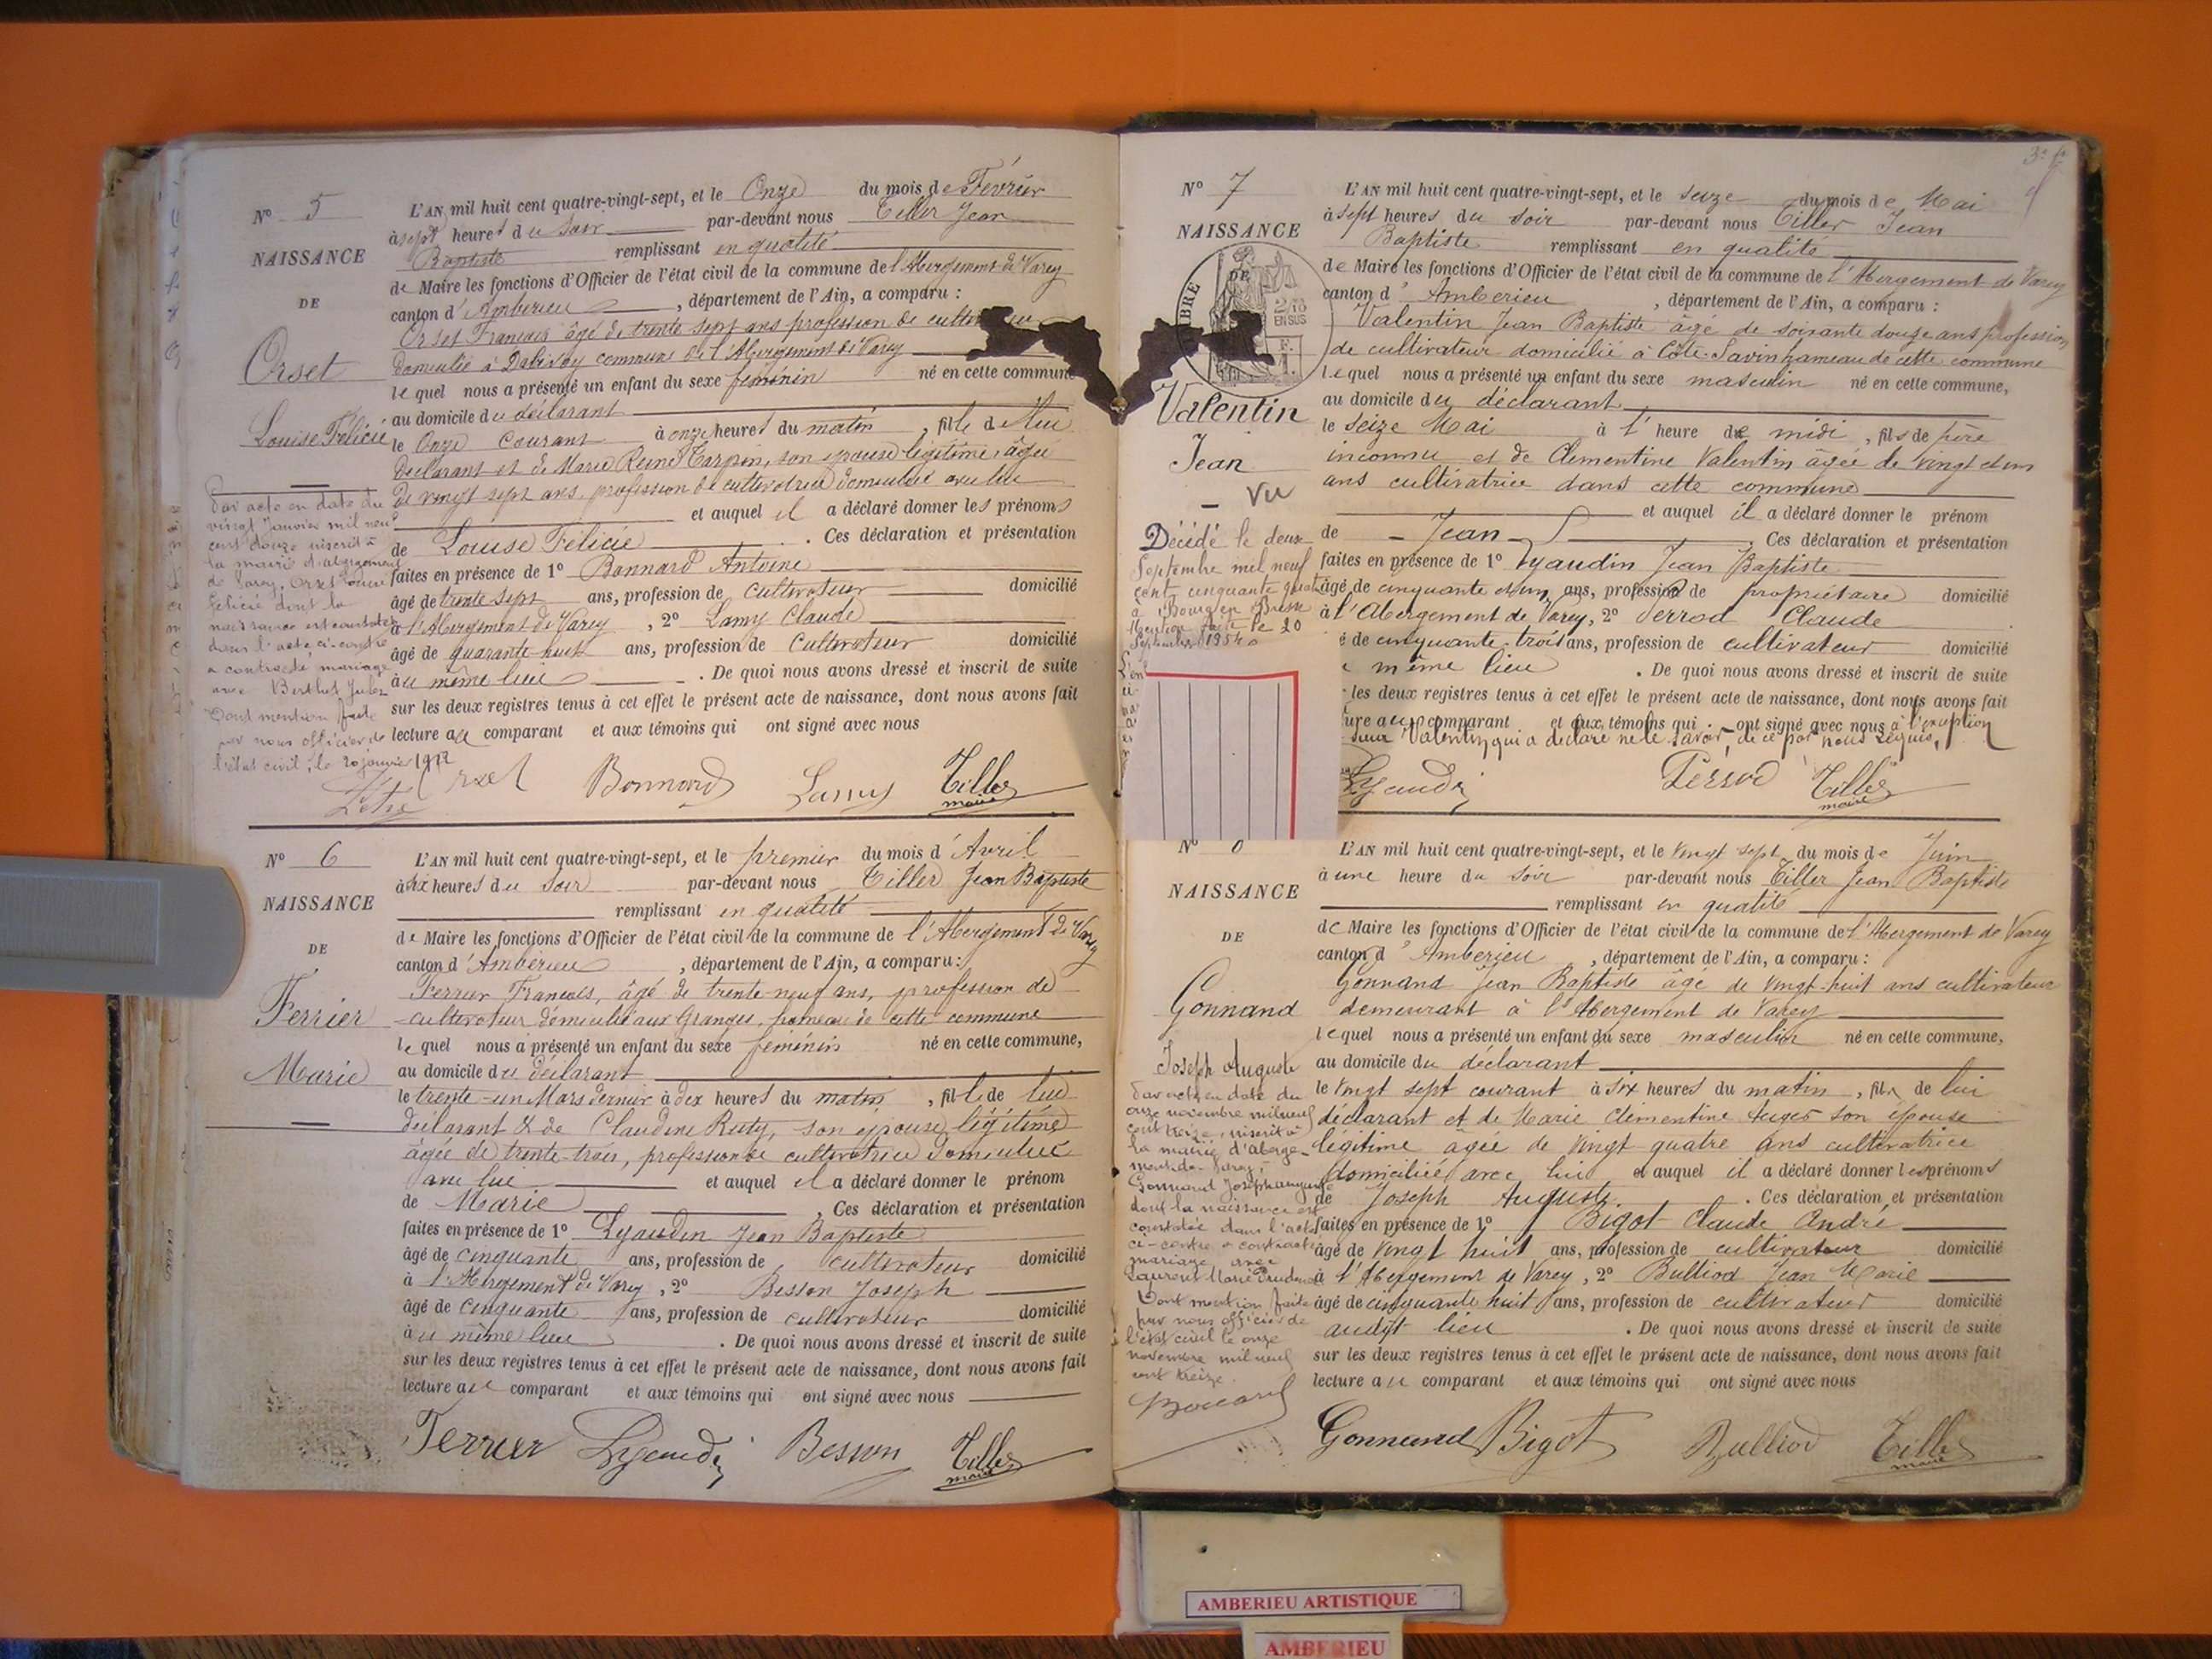 N° 5
NAISSANCE
DE
Orset
Louise Félicie
Par acte en date du
vingt Janvier mil neuf
cent douze inscrit à
la mairie d'abergement
de Varey, Orset Louise
Félicie dont la
naissance est constatée
dans l'acte ci-contre
a contracté mariage
avec Berthet Jules
Dont mention faite
par nous officier de
l'état civil, le 20 janvier 1912
L'AN mil huit cent quatre-vingt-sept, et le Onze du mois de Février
à sept heures du soir par-devant nous Tiller Jean
Baptiste remplissant en qualité
de Maire les fonctions d'Officier de l'état civil de la commune de l'Abergement de Varey
canton d'Ambérieu, département de l'Ain, a comparu :
Orset Francois âgé de trente sept ans profession de
domicilié à commune de l'Abergement de Varey
lequel nous a présenté un enfant du sexe féminin né en cette commune
au domicile du déclarant
le Onze courant à onze heures du matin, fille de lui
déclarant et de Marie Reine Tarpin, son épouse légitime, âgée
de vingt sept ans, profession de cultivatrice domiciliée avec lui
et auquel il a déclaré donner les prénoms
de Louise Félicie. Ces déclaration et présentation
faites en présence de 1° Bonnard Antoine
âgé de trente sept ans, profession de cultivateur domicilié
à l'Abergement de Varey, 2° Lamy Claude
âgé de quarante-huit ans, profession de Cultivateur domicilié
au même lieu. De quoi nous avons dressé et inscrit de suite
sur les deux registres tenus à cet effet le présent acte de naissance, dont nous avons fait
lecture au comparant et aux témoins qui ont signé avec nous
Orset Bonnard Lamy Tiller
maire
N° 6
NAISSANCE
DE
Ferrier
Marie
L'AN mil huit cent quatre-vingt-sept, et le premier du mois d'Avril
à six heures du soir par-devant nous Tiller Jean Baptiste
remplissant en qualité
de Maire les fonctions d'Officier de l'état civil de la commune de l'Abergement de Varey
canton d'Ambérieu, département de l'Ain, a comparu :
Ferrier Francois, âgé de trente-neuf ans, profession de
cultivateur domicilié aux Granges, hameau de cette commune
lequel nous a présenté un enfant du sexe féminin né en cette commune,
au domicile du déclarant
le trente-un Mars dernier à dix heures du matin, fille de lui
déclarant & de Claudine Ruty, son épouse légitime
âgée de trente-trois, profession de cultivatrice domiciliée
avec lui et auquel il a déclaré donner le prénom
de Marie. Ces déclaration et présentation
faites en présence de 1° Lyaudin Jean Baptiste
âgé de cinquante ans, profession de cultivateur domicilié
à l'Abergement de Varey, 2° Besson Joseph
âgé de cinquante ans, profession de cultivateur domicilié
au même lieu. De quoi nous avons dressé et inscrit de suite
sur les deux registres tenus à cet effet le présent acte de naissance, dont nous avons fait
lecture au comparant et aux témoins qui ont signé avec nous
Ferrier Lyaudin Besson Tiller
maire
N° 7
NAISSANCE
DE
Valentin
Jean
Vu
Décédé le deux
Septembre mil neuf
cent cinquante quatre
à Bourg en Bresse
Mention faite le 20
Septembre 1954
L'AN mil huit cent quatre-vingt-sept, et le seize du mois de Mai
à sept heures du soir par-devant nous Tiller Jean
Baptiste remplissant en qualité
de Maire les fonctions d'Officier de l'état civil de la commune de l'Abergement de Varey
canton d'Amberieu, département de l'Ain, a comparu :
Valentin Jean Baptiste âgé de soixante douze ans profession
de cultivateur domicilié à Côte-Savin hameau de cette commune
lequel nous a présenté un enfant du sexe masculin né en cette commune,
au domicile du déclarant
le seize Mai à l'heure de midi, fils de père
inconnu et de Clementine Valentin âgée de vingt et un
ans cultivatrice dans cette commune
et auquel il a déclaré donner le prénom
de Jean. Ces déclaration et présentation
faites en présence de 1° Lyaudin Jean Baptiste
âgé de cinquante et un ans, profession de propriétaire domicilié
à l'Abergement de Varey, 2° Perrod Claude
é de cinquante-trois ans, profession de cultivateur domicilié
même lieu. De quoi nous avons dressé et inscrit de suite
les deux registres tenus à cet effet le présent acte de naissance, dont nous avons fait
ture au comparant et aux témoins qui ont signé avec nous à l'exception
sieur Valentin qui a déclaré ne le savoir, de ce par nous requis,
Lyaudin Perrod Tiller
maire
N°
NAISSANCE
DE
Gonnand
Joseph Auguste
Par acte en date du
onze novembre mil neuf
cent treize, inscrit à
la mairie d'aberge-
ment de Varey,
Gonnand Joseph auguste
dont la naissance est
constatée dans l'acte
ci-contre a contracté
mariage avec
Laurent Marie
Dont mention faite
par nous officier de
l'état civil le onze
novembre mil neuf
cent treize.
L'AN mil huit cent quatre-vingt-sept, et le vingt sept du mois de Juin
à une heure du soir par-devant nous Tiller Jean Baptiste
remplissant en qualité
de Maire les fonctions d'Officier de l'état civil de la commune de l'Abergement de Varey
canton d'Amberieu, département de l'Ain, a comparu :
Gonnand Jean Baptiste âgé de vingt-huit ans cultivateur
demeurant à l'Abergement de Varey
lequel nous a présenté un enfant du sexe masculin né en cette commune,
au domicile du déclarant
le vingt sept courant à six heures du matin, fils de lui
déclarant et de Marie Clémentine son épouse
légitime âgée de vingt quatre ans cultivatrice
domiciliée avec lui et auquel il a déclaré donner les prénoms
de Joseph Auguste. Ces déclaration et présentation
faites en présence de 1° Bigot Claude André
âgé de vingt huit ans, profession de cultivateur domicilié
à l'Abergement de Varey, 2° Bulliod Jean Marie
âgé de cinquante huit ans, profession de cultivateur domicilié
audit lieu. De quoi nous avons dressé et inscrit de suite
sur les deux registres tenus à cet effet le présent acte de naissance, dont nous avons fait
lecture au comparant et aux témoins qui ont signé avec nous
Gonnand Bigot Bulliod Tiller
maire
AMBERIEU ARTISTIQUE
AMBERIEU